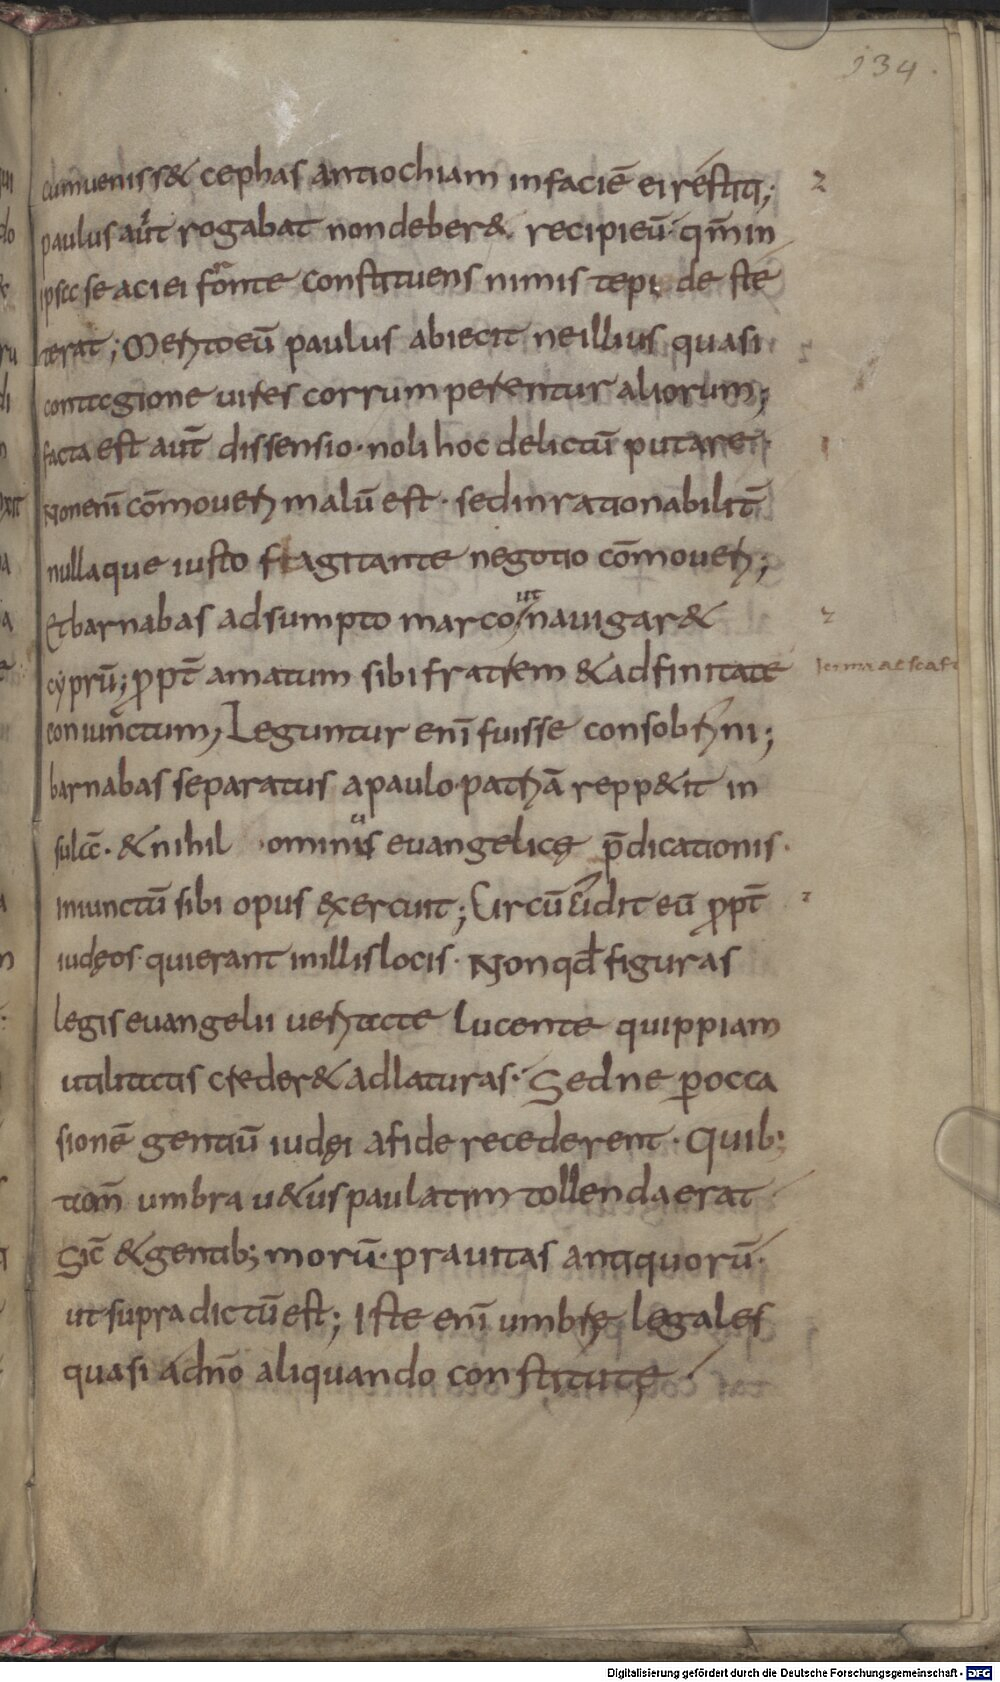 134.
cumuenisset cephas antiochiam infaciē ei restitit;
paulus aūt rogabat nondeberet recipi eū· qm̄ in
ipsa se aciei fronte constituens nimis tepide ste
terat; Merito eū paulus abiecit ne illius quasi
contagione uires corrumperentur aliorum;
facta est aūt dissensio· noli hoc delictū putare·
Non eni᷄ cōmoueri malū est· sed inrationabilit̄
nullaque iusto flagitante negotio cōmoueri;
Et barnabas adsumpto marco ut nauigaret
cyprū; ꝓpt̄ amatum sibi fratrem & adfinitate
coniunctum, Leguntur enī fuisse consobrini;
barnabas separatus apaulo· patriā reppetit in
sulā· & nihil ·ominus euangelicę p̄dicationis·
iniunctū sibi opus exercuit; Circūcidit eū ꝓpt̄
iudęos· quierant inillislocis· Nonqđ figuras
legis euangelii ueritate lucente quippiam
utilitatis crederet adlaturas· Sedne ꝑocca
sionē gentiū iudęi afide recederent· Quib;
tam̄ umbra uetus paulatim tollenda erat
sic̄ & gentib; morū· prauitas antiquorū·
ut supra dictū est; Iste enī umbrę legales
quasi adn̄o aliquando constitutę·
Digitalisierung gefördert durch die Deutsche Forschungsgemeinschaft · DFG